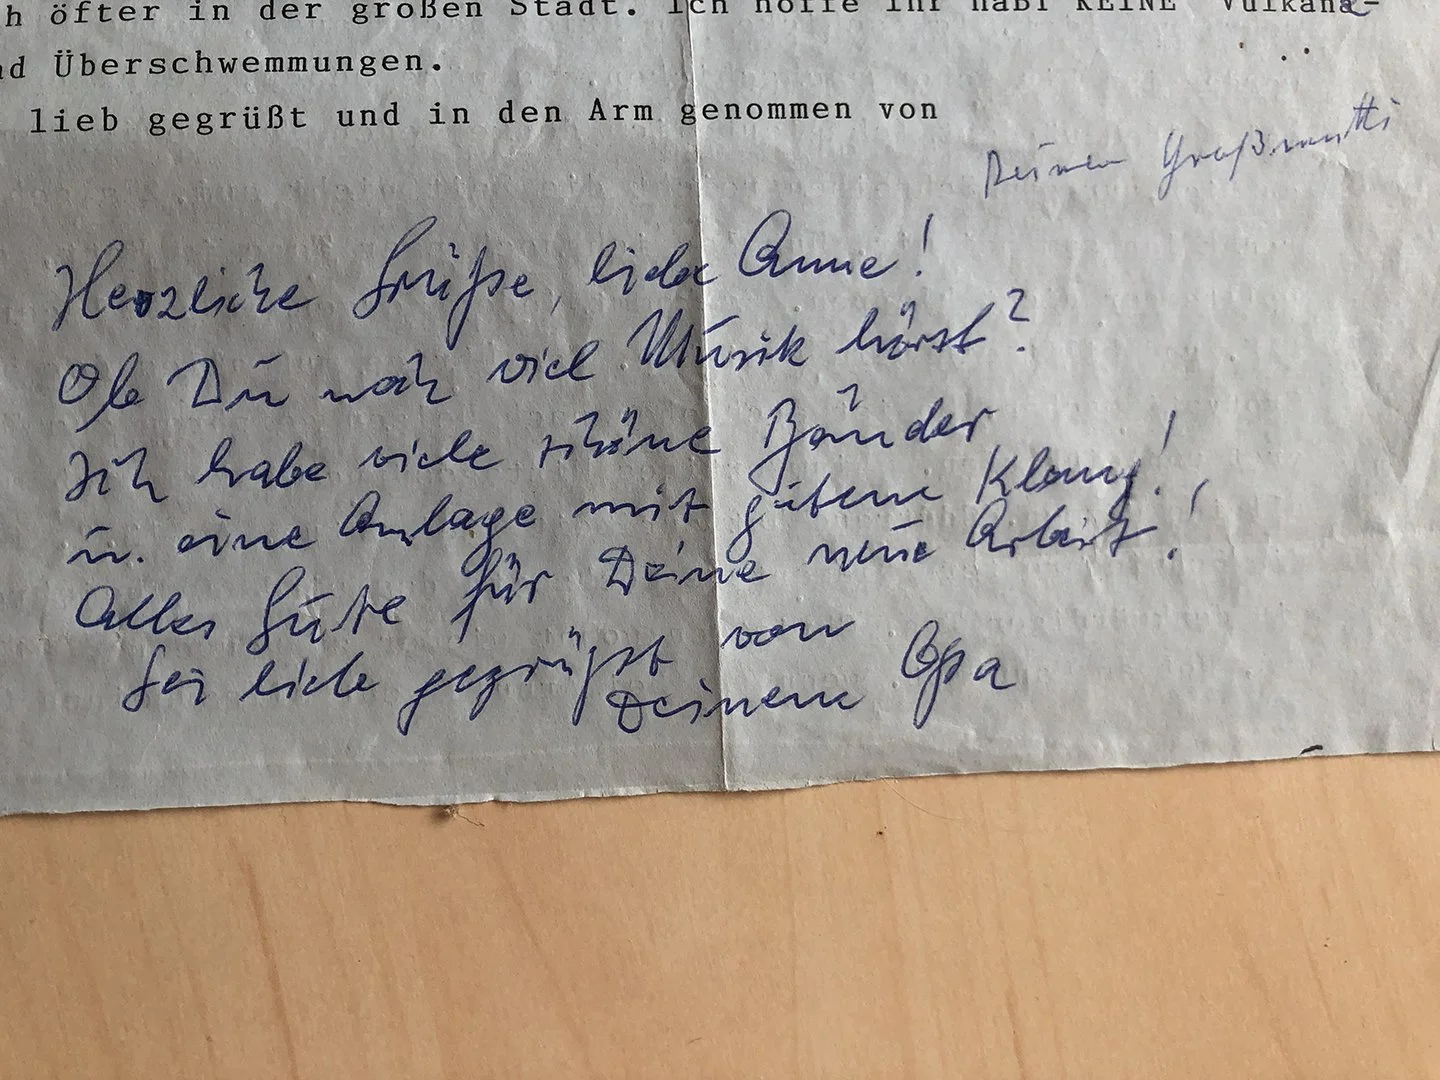 h öfter in der großen Stadt. Ich hoffe Ihr habt KEINE Vulkana-
nd Überschwemmungen.
lieb gegrüßt und in den Arm genommen von
Deiner Großmutti
Herzliche Grüße, liebe Anne!
Ob Du noch viel Musik hörst?
Ich habe viele schöne Bänder
u. eine Anlage mit gutem Klang!
Alles Gute für Deine neue Arbeit!
Sei lieb gegrüßt von
Deinem Opa